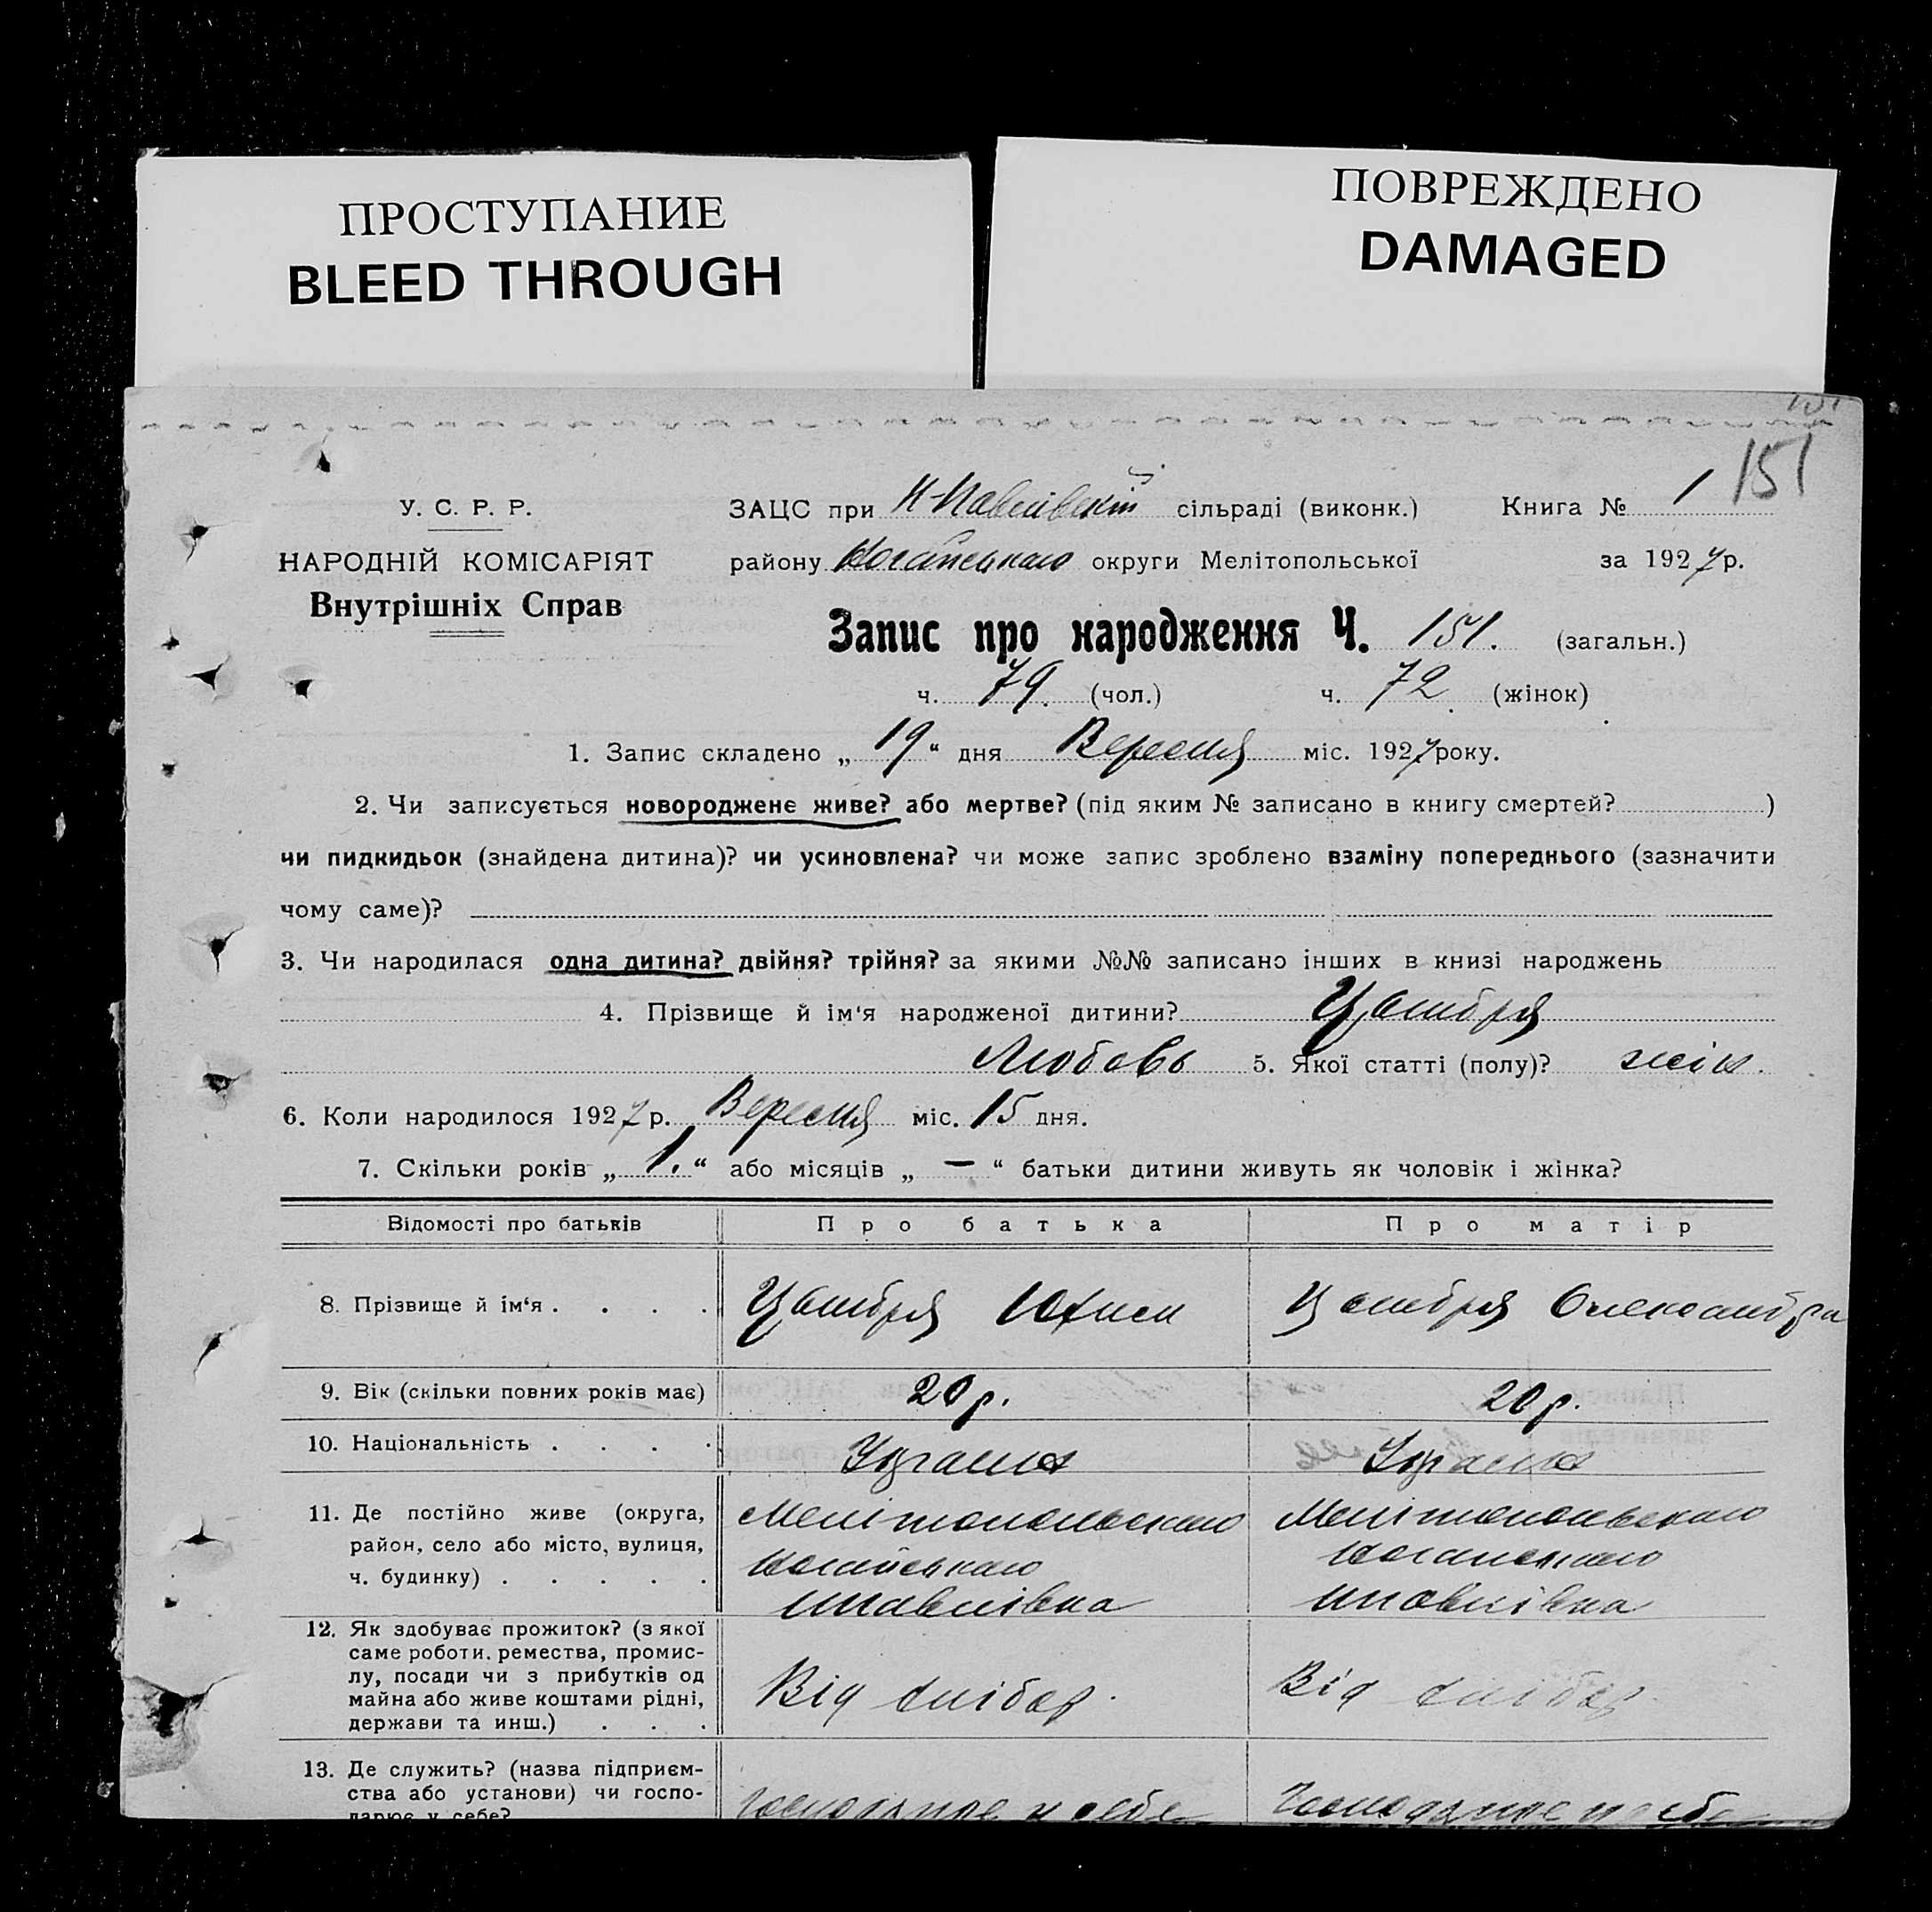 ПРОСТУПАНИЕ
BLEED THROUGH
ПОВРЕЖДЕНО
DAMAGED
151
У. С. Р. Р.
НАРОДНІЙ КОМІСАРІЯТ
Внутрішніх Справ
ЗАЦС при Н-Павлівській сільраді (виконк.) Книга № 1
району Ногайського округи Мелітопольської за 1927 р.
Запис про народження Ч. 151. (загальн.)
ч. 79. (чол.) ч. 72. (жінок)
1. Запис складено „ 19 “ дня Вересня міс. 1927 року.
2. Чи записується новороджене живе? або мертве? (під яким № записано в книгу смертей? )
чи пидкидьок (знайдена дитина)? чи усиновлена? чи може запис зроблено взаміну попереднього (зазначити
чому саме)?
3. Чи народилася одна дитина? двійня? трійня? за якими №№ записано інших в книзі народжень
4. Прізвище й ім‘я народженої дитини? Цамбря
Любовь 5. Якої статті (полу)? жін.
6. Коли народилося 1927 р. Вересня міс. 15 дня.
7. Скільки років „ 1. “ або місяців „ — “ батьки дитини живуть як чоловік і жінка?
Відомості про батьків Про батька Про матір
8. Прізвище й ім‘я . . . . Цамбря Юхим Цамбря Олександра
9. Вік (скільки повних років має) 20 р. 20 р.
10. Національність . . . .
11. Де постійно живе (округа,
район, село або місто, вулиця,
ч. будинку) . . . . .
Мелітопольського
Ногайського
Мелітопольського
Ногайського
12. Як здобуває прожиток? (з якої
саме роботи. ремества, промис-
лу, посади чи з прибутків од
майна або живе коштами рідні,
держави та инш.) . . .
Від хлібор. Від хлібор.
13. Де служить? (назва підприєм-
ства або установи) чи госпо-
дарює у себе?
Господарює у себе Господарює у себе